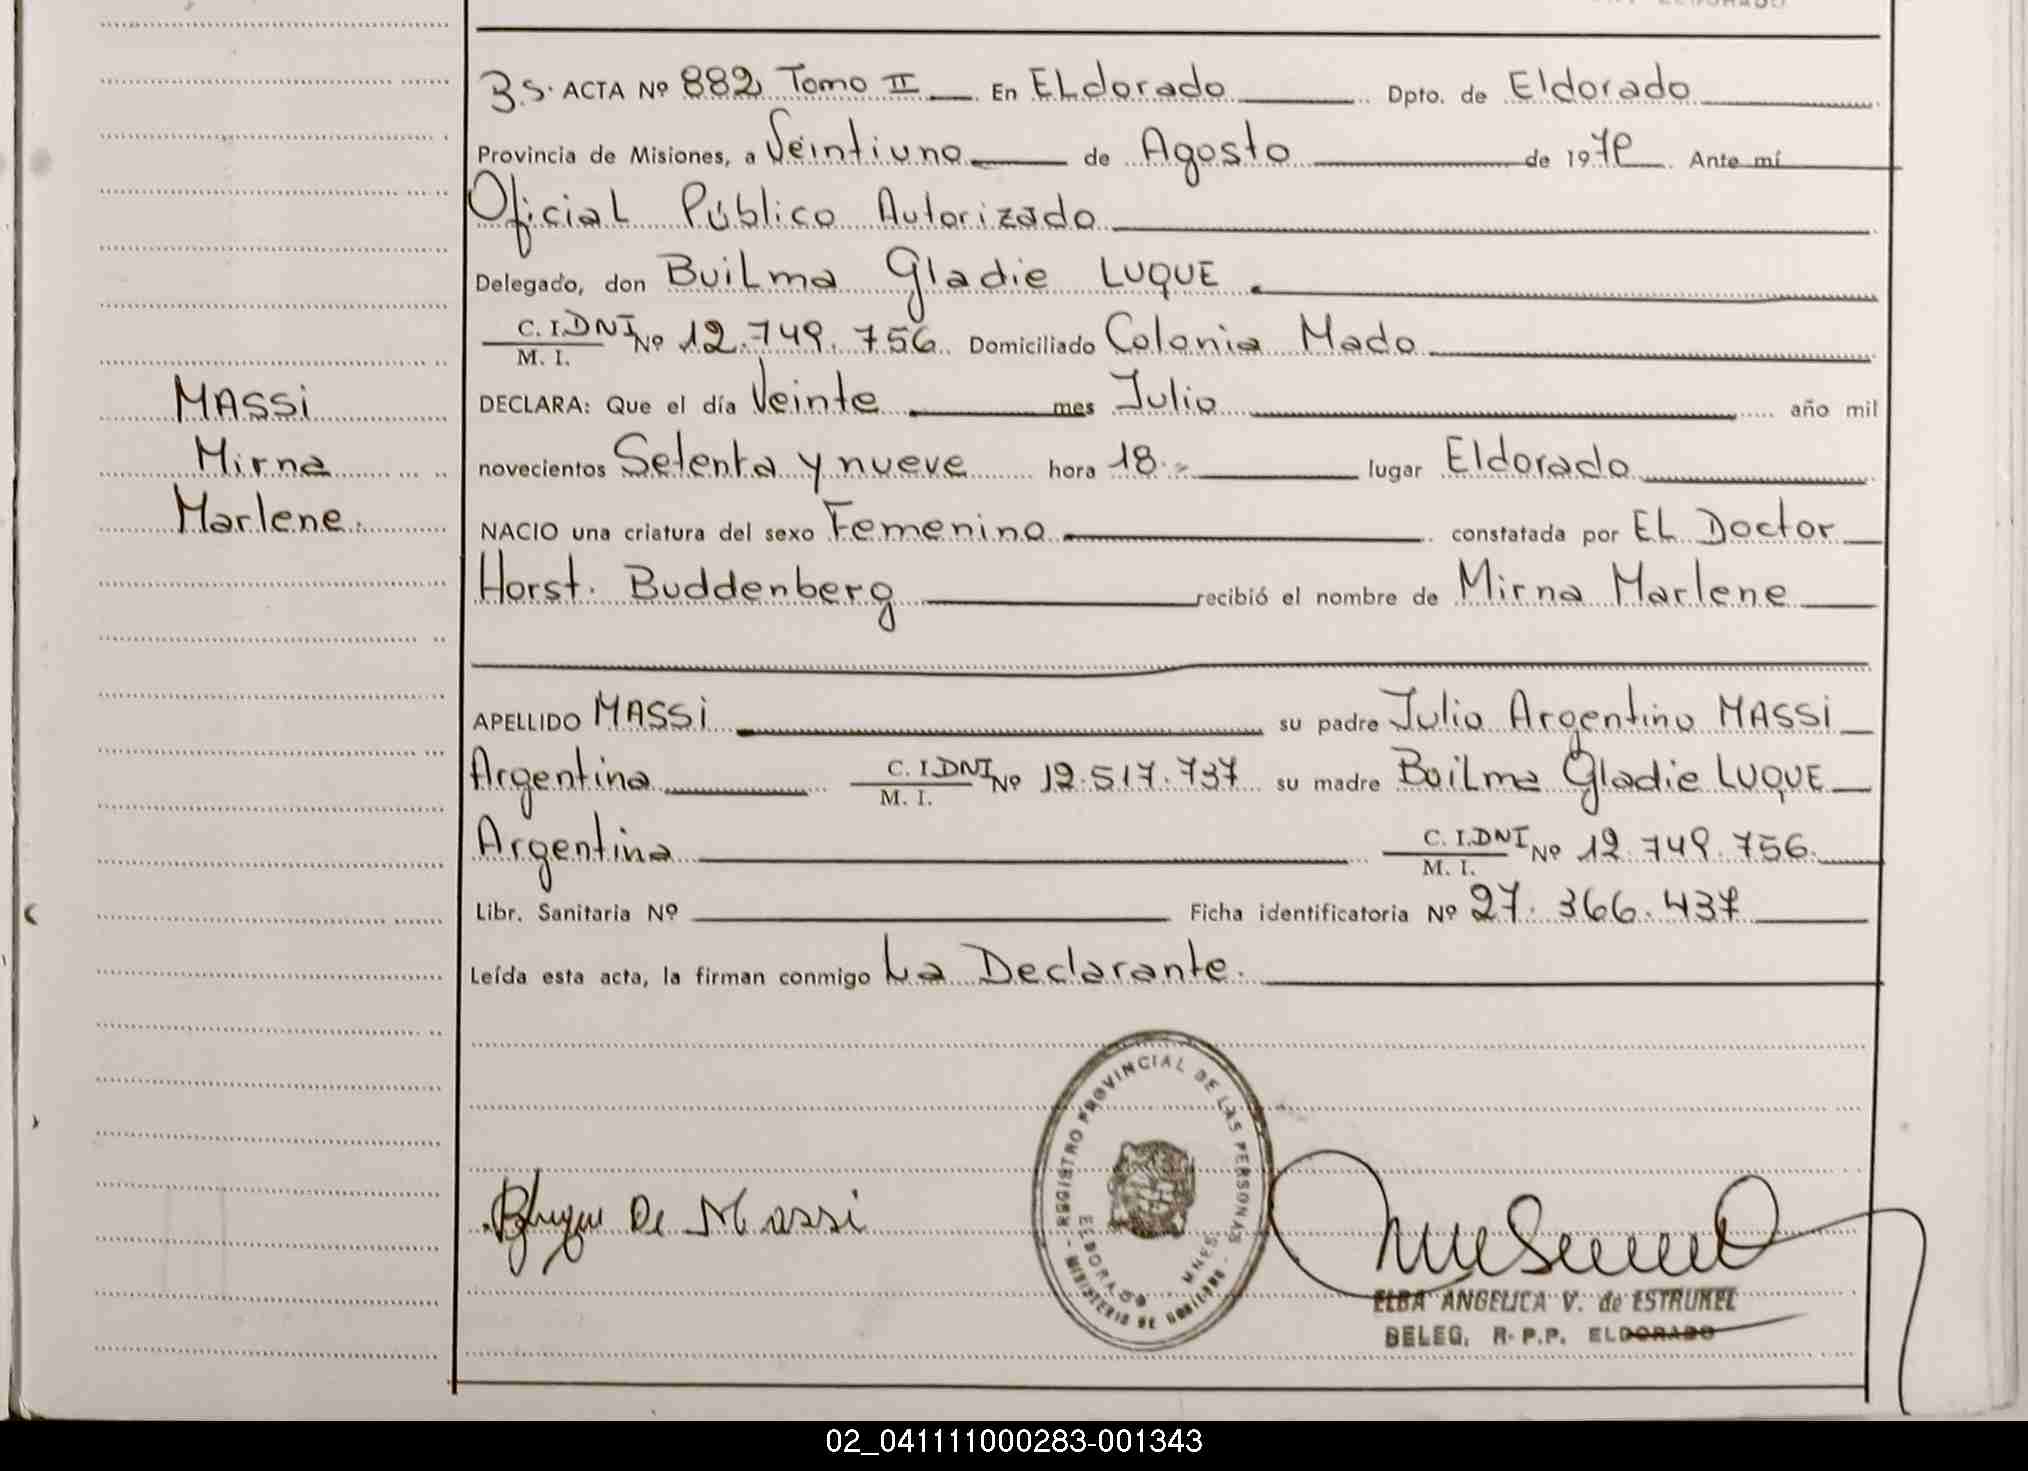 3.S. ACTA Nº 882 Tomo II En ELdorado Dpto. de Eldorado
Provincia de Misiones, a Veintiuno de Agosto de 1979 Ante mí
Oficial Público Autorizado
Delegado, don BuiLma Gladie LUQUE
C. I. DNI Nº 12.749.756 Domiciliado Colonia Mado
M. I.
MASSi
Mirna
Marlene.
DECLARA: Que el día Veinte mes Julio año mil
novecientos Setenta y nueve hora 18.- lugar Eldorado
NACIO una criatura del sexo Femenino constatada por EL Doctor
Horst. Buddenberg recibió el nombre de Mirna Marlene
APELLIDO MASSi su padre Julio Argentino MASSi
Argentina C. I. DNI Nº 12.517.737 su madre BuiLma Gladie LUQUE
M. I.
Argentina C. I. DNI Nº 12.749.756.
M. I.
Libr. Sanitaria Nº Ficha identificatoria Nº 27.366.437
Leída esta acta, la firman conmigo La Declarante.
REGISTRO PROVINCIAL DE LAS PERSONAS
ELDORADO MNES.
- MINISTERIO DE GOBIERNO -
De Massi
ELBA ANGELICA V. de ESTRUKEL
DELEG. R.P.P. ELDORADO
02_041111000283-001343